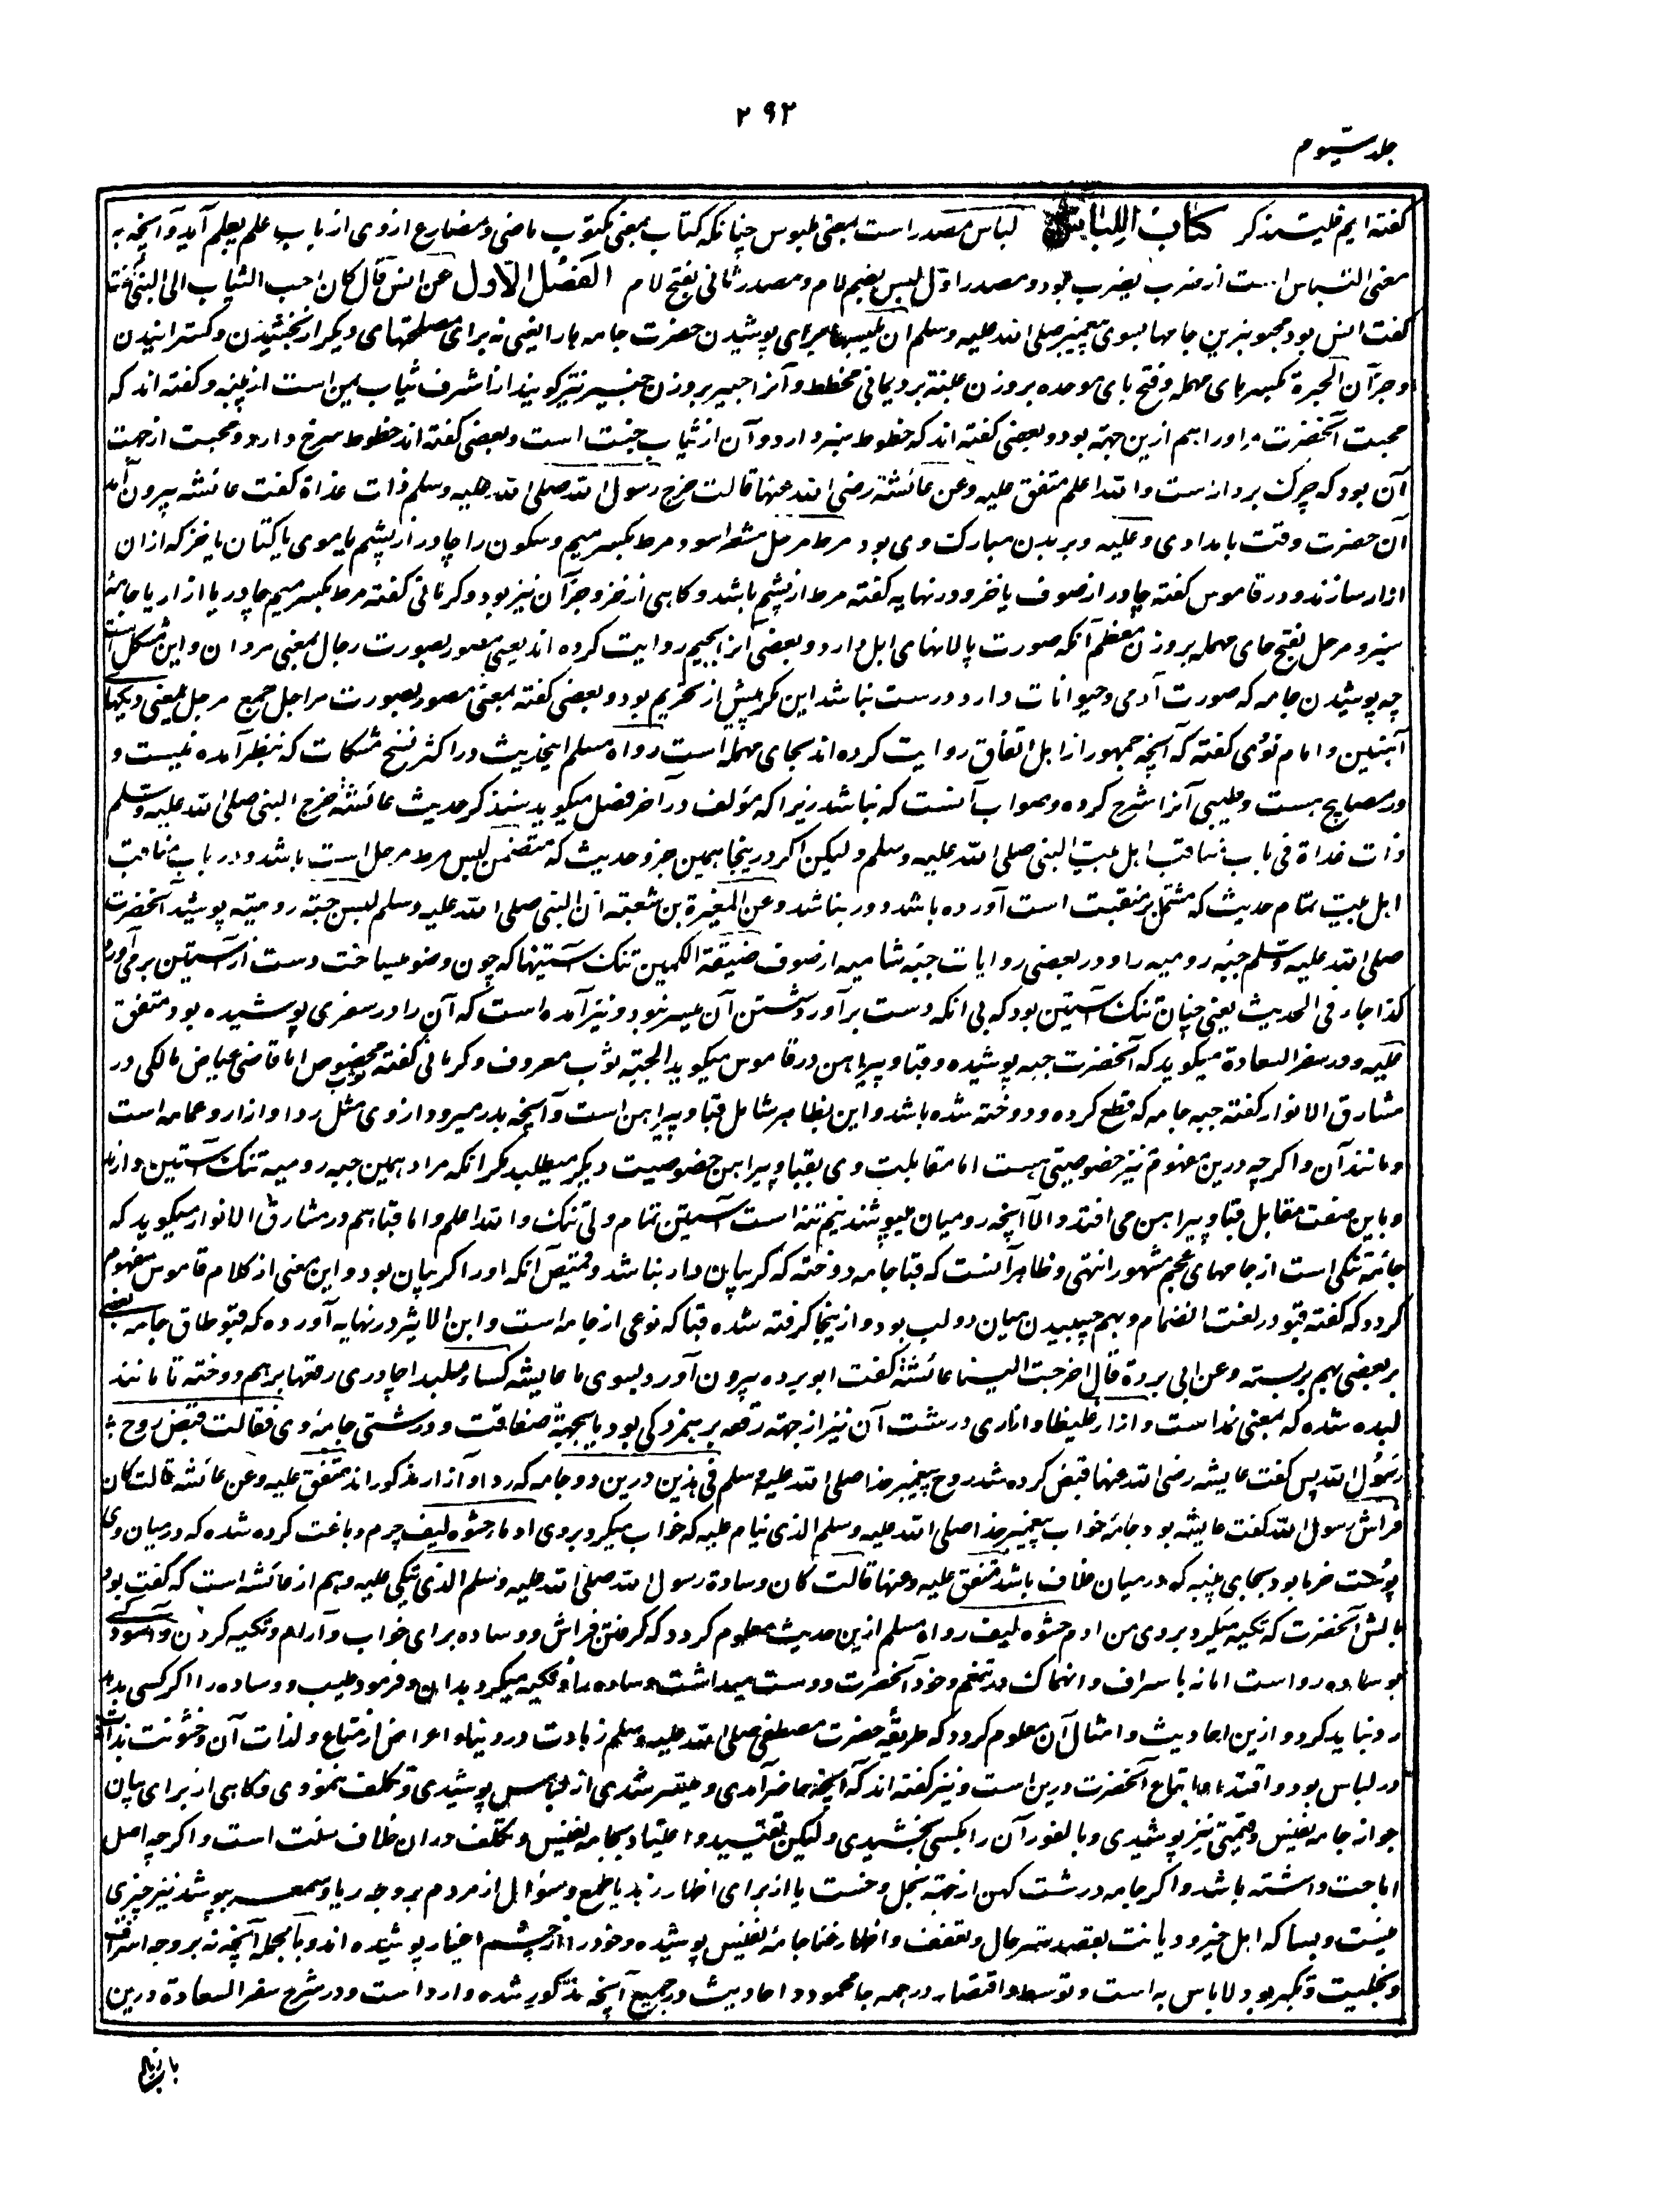 ۲۹۲
جلد سیوم
گفته ایم فلیتذکر کتاب اللباس لباس مصدر است بمعنی ملبوس چنانکه کتاب بمعنی مکتوب ماضی و مضارع ازوی از باب علم یعلم آید و آنچه به
معنی التباس است از ضرب یضرب بود و مصدر اول لبس بضم لام و مصدر ثانی بفتح لام الفصل الاول عن انس قال کان احب الثیاب الی النبی
گفت انس بود محبوبترین جامها بسوی پیغمبر صلی الله علیه وسلم ان یلبسها برای پوشیدن حضرت جامه ها را یعنی نه برای مصلحتهای دیگر از بخشیدن و گسترانیدن
و جز آن الحبرة بکسر حای مهمله و فتح بای موحده بروزن عنبة برد یمانی مخطط و آنرا حبیر بروزن خبیر نیز گویند از اشرف ثیاب یمن است از پنبه و گفته اند که
محبت آنحضرت مر او را هم ازین جهة بود و بعضی گفته اند که خطوط سبز دارد و آن از ثیاب جنت است و بعضی گفته اند خطوط سرخ دارد و محبت از جهت
آن بود که چرک بردارست والله اعلم متفق علیه وعن عائشة رضی الله عنها قالت خرج رسول الله صلی الله علیه وسلم ذات غداة گفت عائشه بیرون آمد
آن حضرت وقت بامدادی وعلیه و بر بدن مبارک وی بود مرط مرحل من شعر اسود مرط بکسر میم و سکون را چادر از پشم یا موی یا کتان یا خز که ازان
ازار سازند و در قاموس گفته چادر از صوف یا خز و در نهایه گفته مرط از پشم باشد و گاهی از خز و جز آن نیز بود و کرمانی گفته مرط بکسر میم چادر یا ازار یا جامهٔ
سبز و مرحل بفتح حای مهمله بروزن معظم آنکه صورت پالانهای ابل دارد و بعضی آنرا بجیم روایت کرده اند یعنی مصور بصورت رجال بمعنی مردان و این مشکل است
چه پوشیدن جامه که صورت آدمی و حیوانات دارد درست نباشد این مگر پیش از تحریم بود و بعضی گفته بمعنی مصور بصورت مراجل جمع مرجل بمعنی دیگها
آهنین و امام نووی گفته که آنچه جمهور از اهل اتفاق روایت کرده اند بحای مهمله است رواه مسلم اینحدیث در اکثر نسخ مشکات که بنظر آمده نیست و
در مصابیح هست و طیبی آنرا شرح کرده و صواب آنست که نباشد زیرا که مؤلف در آخر فصل میگوید سنذکر حدیث عائشة خرج النبی صلی الله علیه وسلم
ذات غداة فی باب مناقب اهل بیت النبی صلی الله علیه وسلم ولیکن اگر درینجا همین جزو حدیث که متضمن لبس مرط مرحل است باشد و در باب مناقب
اهل بیت تمام حدیث که مشتمل بر منقبت است آورده باشد دور نباشد وعن المغیرة بن شعبة ان النبی صلی الله علیه وسلم لبس جبة رومیة پوشید آنحضرت
صلی الله علیه وسلم جبه رومیه را و در بعضی روایات جبه شامیه از صوف ضیقة الکمین تنک آستینها که چون وضو میساخت دست از آستین برمی آورد
کذا جاء فی الحدیث یعنی چنان تنک آستین بود که بی آنکه دست برآورد شستن آن میسر نبود و نیز آمده است که آن را در سفری پوشیده بود متفق
علیه و در سفر السعادة میگوید که آنحضرت جبه پوشیده و قبا و پیراهن در قاموس میگوید الجبة ثوب معروف و کرمانی گفته ثوب مخصوص اما قاضی عیاض مالکی در
مشارق الانوار گفته جبه جامه که قطع کرده و دوخته شده باشد و این بظاهر شامل قبا و پیراهن است و آنچه بدر میرود ازوی مثل ردا و ازار و عمامه است
و مانند آن و اگرچه درین مفهوم نیز خصوصیتی هست اما مقابلت وی بقبا و پیراهن خصوصیت دیگر میطلبد مگر آنکه مراد همین جبه رومیه تنک آستین دارند
و باین صفت مقابل قبا و پیراهن می افتد والا آنچه رومیان میپوشند نیم تنه است آستین تمام ولی تنک والله اعلم و اما قبا هم در مشارق الانوار میگوید که
جامهٔ تنگی است از جامهای عجم مشهور انتهی و ظاهر آنست که قبا جامه دوخته که گریبان دار نباشد و قمیص آنکه او را گریبان بود و این معنی از کلام قاموس مفهوم
گردد که گفته قبو در لغت انضمام و بهم چسپیدن میان دو لب بود و ازینجا گرفته شده قبا که نوعی از جامه است و ابن الاثیر در نهایه آورده که قبو طاق جامه بعضی
بر بعضی بهم بربسته وعن ابی بردة قال اخرجت الینا عائشة گفت ابو برده بیرون آورد بسوی ما عایشه کساء ملبدا چادری رقعها برهم دوخته تا مانند
لبده شده که بمعنی نمد است وازارا غلیظا و ازاری درشت آن نیز از جهته رقعه بر همزدگی بود یا بجهة صفاقت و درشتی جامه وی فقالت قبض روح
رسول الله پس گفت عایشه رضی الله عنها قبض کرده شد روح پیغمبر خدا صلی الله علیه وسلم فی هذین درین دو جامه که ردا و آزار مذکور اند متفق علیه وعن عائشه قالت کان
فراش رسول الله گفت عایشه بود جامهٔ خواب پیغمبر خدا صلی الله علیه وسلم الذی ینام علیه که خواب میکرد بروی ادما حشوه لیف چرم دباغت کرده شده که درمیان وی
پوست خرما بود بجای پنبه که درمیان لحاف باشد متفق علیه وعنها قالت کان وسادة رسول الله صلی الله علیه وسلم الذی یتکی علیه وهم از عائشه است که گفت بود
بالش آنحضرت که تکیه میکرد بروی من ادم حشوه لیف رواه مسلم ازین حدیث معلوم گردد که گرفتن فراش و وساده برای خواب و آرام و تکیه کردن و آسودگی
بوساده رواست اما نه باسراف و انهماک در تنعم و خود آنحضرت دوست میداشت وساده را و تکیه میکرد بدان و فرمود طیب و وساده را اگر کسی بدهد
رد نباید کرد و ازین احادیث و امثال آن معلوم گردد که طریقهٔ حضرت مصطفی صلی الله علیه وسلم زهادت در دنیا و اعراض از متاع و لذات آن و خشونت
در لباس بود و اقتدا و اتباع آنحضرت درین است و نیز گفته اند که آنچه حاضر آمدی و میسر شدی از لباس پوشیدی و تکلف ننمودی و گاهی از برای بیان
جواز جامه نفیس و قیمتی نیز پوشیدی و بالفور آن را بکسی بخشیدی ولیکن تقیید و اعتیاد بجامه نفیس و تکلف دران خلاف سنت است و اگرچه اصل
اباحت داشته باشد و اگر جامه درشت کهن از جهته بخل و خست یا از برای اظهار زهد یا طمع و سؤال از مردم بروجه ریا و سمعه بپوشد نیز چیزی
نیست و بسا که اهل خیر و دیانت بقصد ستر حال و تعفف و اظهار غنا جامهٔ نفیس پوشیده و خود را از چشم اغیار پوشیده اند و بالجمله آنچه نه بروجه اسراف
و مخلیت و تکبر بود لاباس به است و توسط و اقتصار در همه جا محمود و احادیث در جمیع آنچه مذکور شده وارد است و در شرح سفر السعادة درین